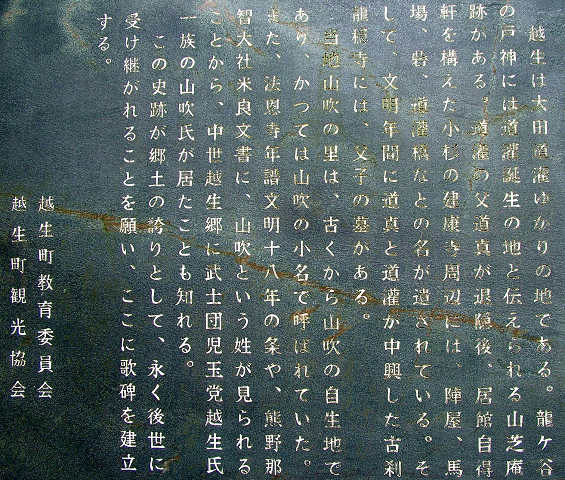 越生は太田道灌ゆかりの地である。龍ケ谷
の戸神には道灌誕生の地と伝えられる山芝庵
跡がある。道灌の父道真が退隠後、居館自得
軒を構えた小杉の健康寺周辺には、陣屋、馬
場、砦、道灌橋などの名が遺されている。そ
して、文明年間に道真と道灌が中興した古刹
龍穏寺には、父子の墓がある。
当地山吹の里は、古くから山吹の自生地で
あり、かつては山吹の小名で呼ばれていた。
また、法恩寺年譜文明十八年の条や、熊野那
智大社米良文書に、山吹という姓が見られる
ことから、中世越生郷に武士団児玉党越生氏
一族の山吹氏が居たことも知れる。
この史跡が郷土の誇りとして、永く後世に
受け継がれることを願い、ここに歌碑を建立
する。
越生町教育委員会
越生町観光協会